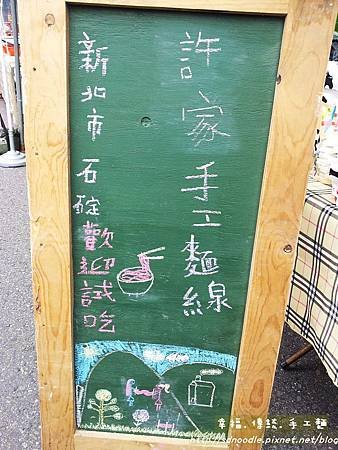 許家手工麵線
新北市石碇歡迎試吃
幸福.傳統.手工麵